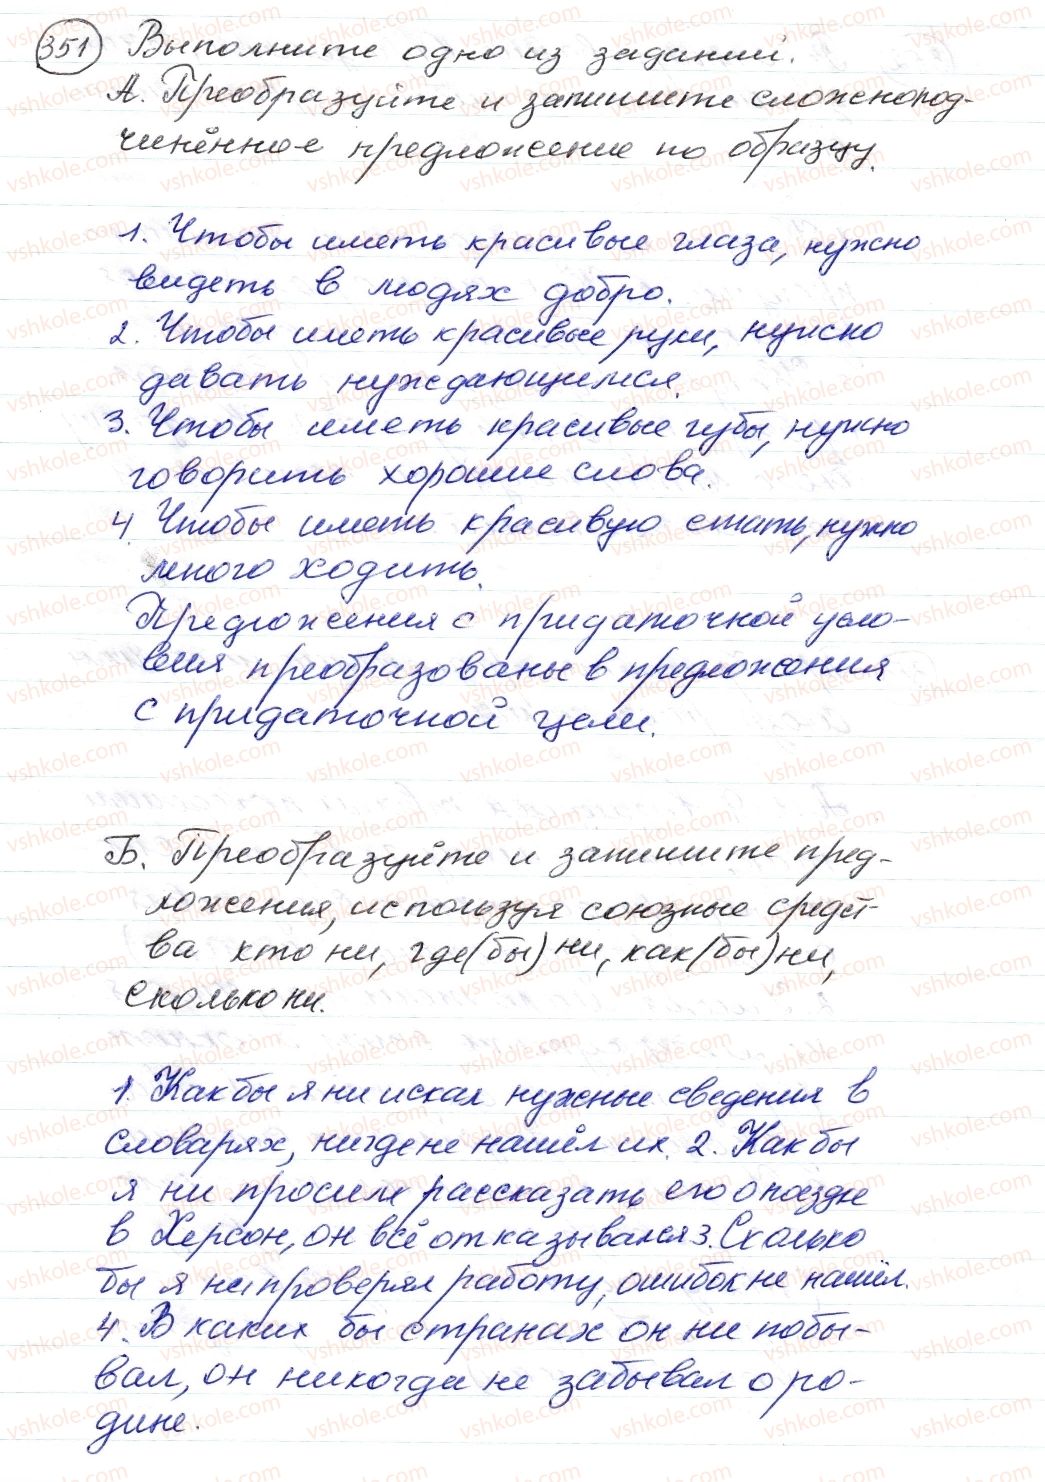 351 Выполните одно из заданий.
А. Преобразуйте и запишите сложнопод-
чинённое предложение по образцу.
1. Чтобы иметь красивые глаза, нужно
видеть в людях добро.
2. Чтобы иметь красивые руки, нужно
давать нуждающимся.
3. Чтобы иметь красивые губы, нужно
говорить хорошие слова.
4. Чтобы иметь красивую стать, нужно
много ходить.
Предложения с придаточной усло-
вия преобразованы в предложения
с придаточной цели.
Б. Преобразуйте и запишите пред-
ложения, используя союзные средст-
ва кто ни, где(бы) ни, как(бы) ни,
сколько ни.
1. Как бы я ни искал нужные сведения в
словарях, нигде не нашёл их. 2. Как бы
я ни просили рассказать его о поездке
в Херсон, он всё отказывался 3. Сколько
бы я ни проверял работу, ошибок не нашёл.
4. В каких бы странах он ни побы-
вал, он никогда не забывал о ро-
дине.